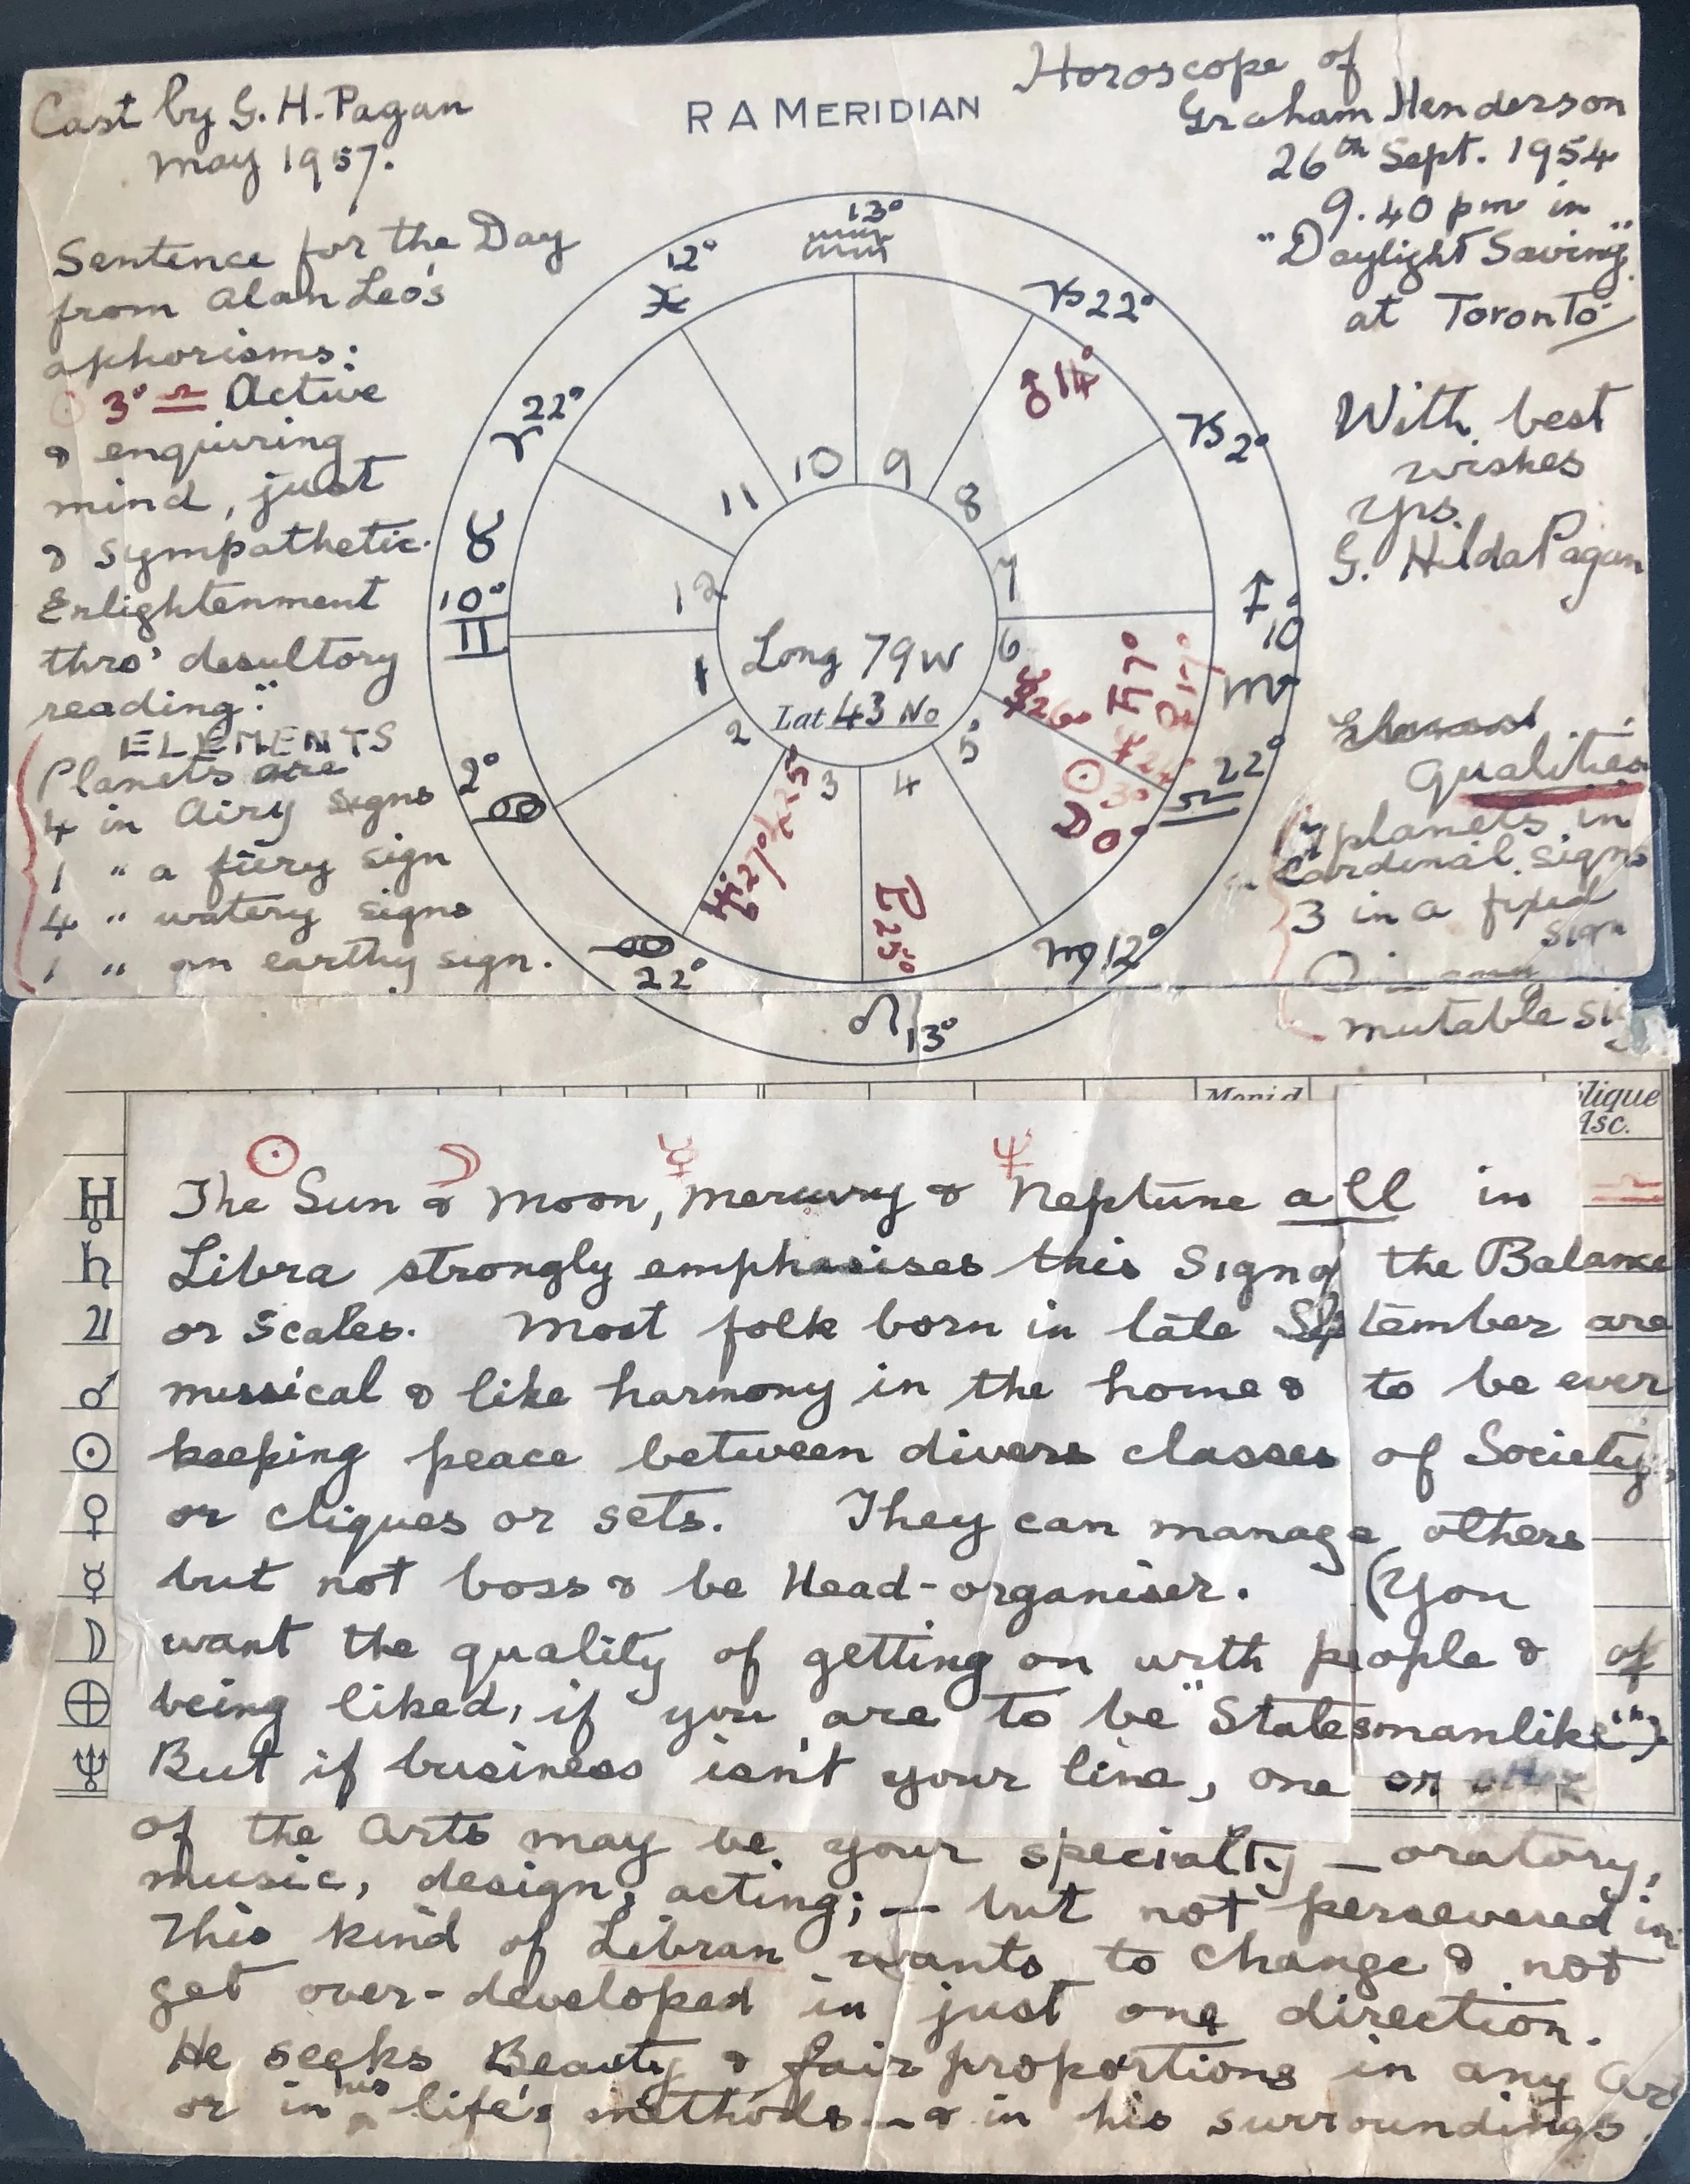 Cast by G. H. Pagan
May 1957.
R A MERIDIAN
Horoscope of
Graham Henderson
26th Sept. 1954
9.40 pm in
"Daylight Saving"
at Toronto
Sentence for the Day
from Alan Leo's
aphorisms:
☉ 3° ♎ Active
& enquiring
mind, just
& sympathetic.
Enlightenment
thro' desultory
reading."
ELEMENTS
Planets are
4 in Airy signs
1 " a fiery sign
4 " watery signs
1 " an earthy sign.
With best
wishes
Yrs.
G. Hilda Pagan
Qualities
planets in
Cardinal signs
3 in a fixed
sign
mutable
13°
♒
♑ 22°
♂ 14°
♑ 2°
♐
10°
♏
22°
♎
♍ 12°
♌ 13°
♋
22°
2°
♋
10°
♊
♉
22°
♈
12°
♓
10
9
8
7
6
5
4
3
2
1
12
11
Long 79 W
Lat 43 No
♄ 7°
♀
☿
☉ 3°
☽ 0°
25°
27°
25°
Merid
lique
Asc.
☉ ☽ ☿ ♆
♅ The Sun & Moon, Mercury & Neptune all in ♎
♄ Libra strongly emphasises this Sign of the Balance
♃ or Scales. Most folk born in late September are
♂ musical & like harmony in the home & to be ever
☉ keeping peace between divers classes of Society,
♀ or cliques or sets. They can manage others
☿ but not boss & be Head-organiser. (You
☽ want the quality of getting on with people & of
⊕ being liked, if you are to be "Statesmanlike")
♆ But if business isn't your line, one or
of the Arts may be your specialty — oratory,
music, design, acting; — but not persevered in
This kind of Libran wants to change & not
get over-developed in just one direction.
He seeks Beauty & fair proportions in any Art
or in his life's methods — & in his surroundings.